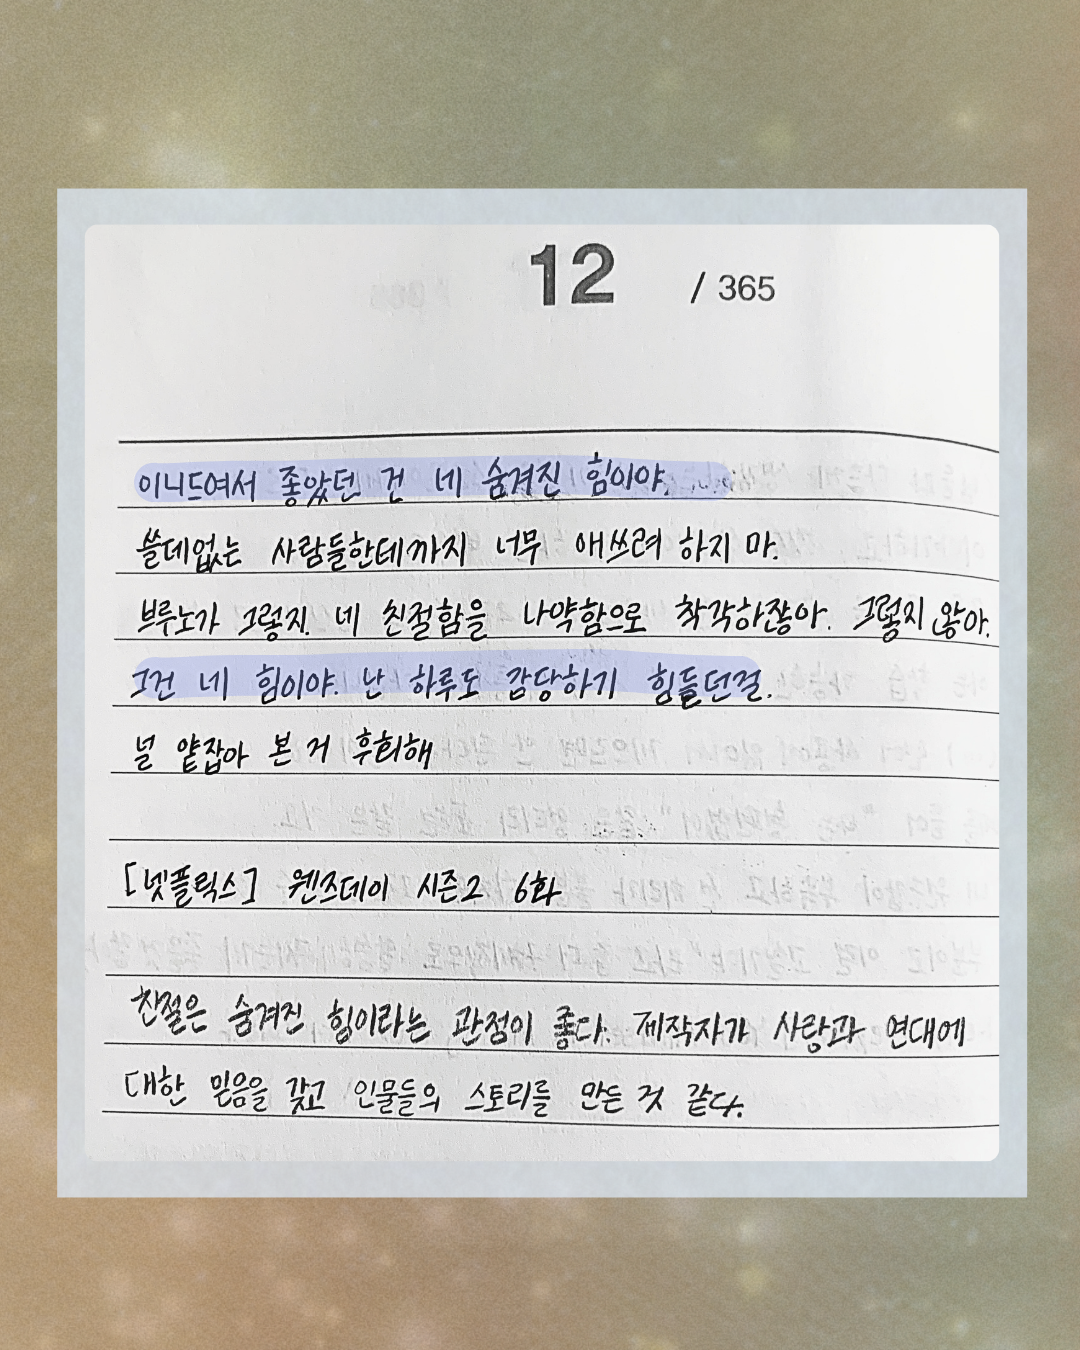 12 / 365
이니드여서 좋았던 건 네 숨겨진 힘이야.
쓸데없는 사람들한테까지 너무 애쓰려 하지 마.
브루노가 그렇지. 네 친절함을 나약함으로 착각하잖아. 그렇지 않아.
그건 네 힘이야. 난 하루도 감당하기 힘들던걸.
널 얕잡아 본 거 후회해
[넷플릭스] 웬즈데이 시즌2 6화
친절은 숨겨진 힘이라는 관점이 좋다. 제작자가 사랑과 연대에
대한 믿음을 갖고 인물들의 스토리를 만든 것 같다.